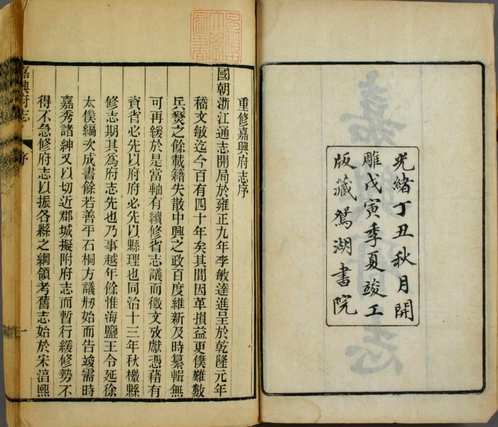 光緒丁丑秋月開
雕戊寅季夏竣工
版藏鴛湖書院
重修嘉興府志序
國朝浙江通志開局於雍正九年李敏達進呈於乾隆元年
稽文敏迄今百有四十年矣其間因革損益更僕難數
兵燹之餘載籍失散中興之政百度維新及時纂輯無
可再緩於是當軸有續修省志議而徵文攷獻憑藉有
資省必先以府府必先以縣理也同治十三年秋檄縣
修志期其為府志先也乃事越年餘惟海鹽王令延徐
太僕續次成書餘若善平石桐方議刱始而告竣需時
嘉秀諸紳又以切近郡城擬附府志而暫行緩修勢不
得不急修府志以振各縣之綱領考舊志始於宋淳熙
嘉興府志
序